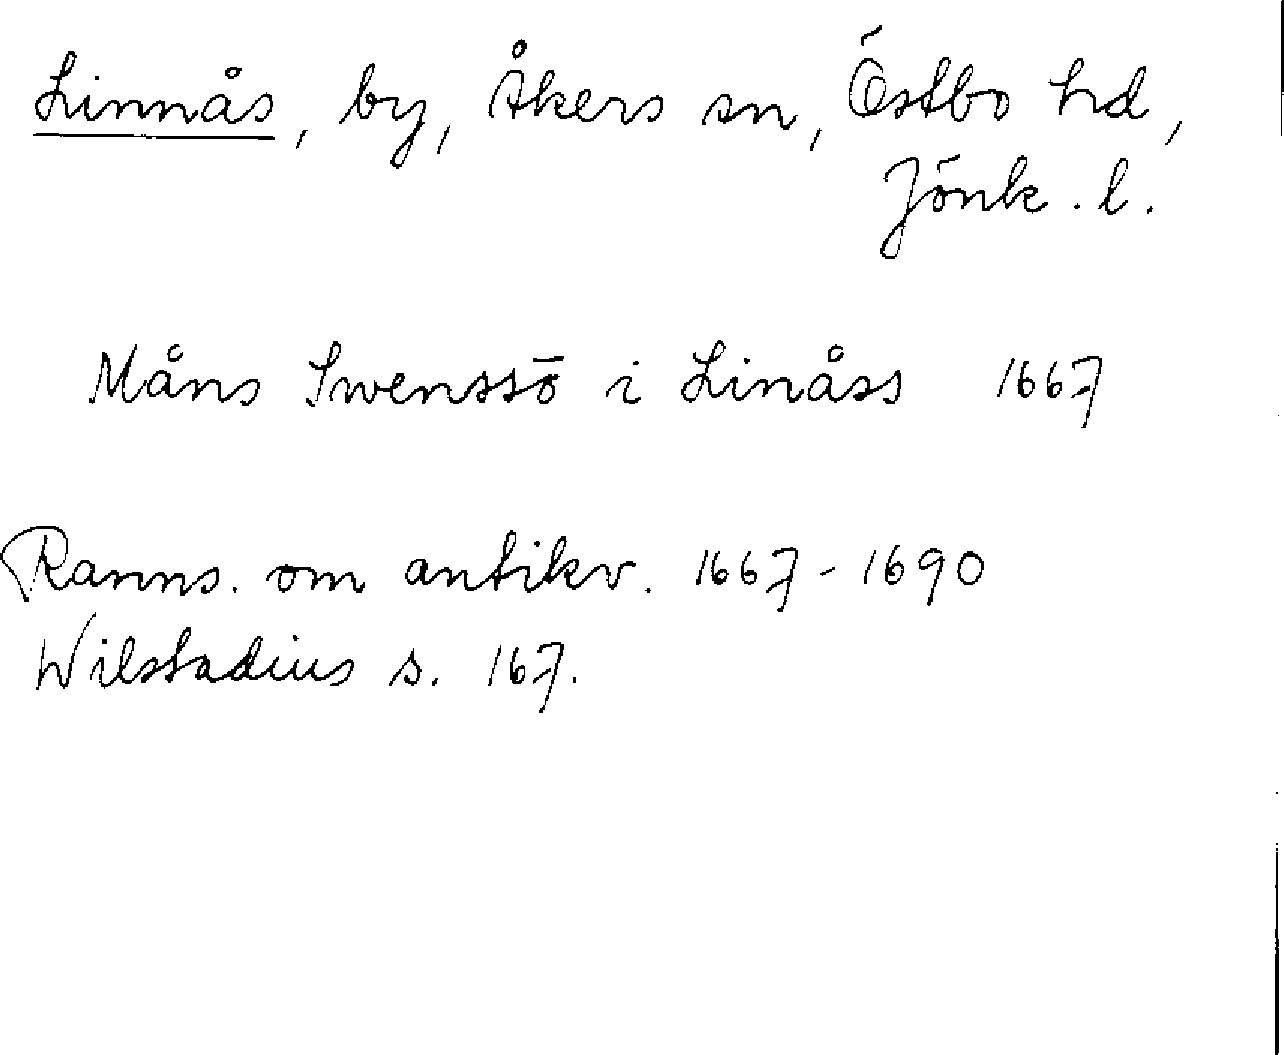 Linnås, by, Åkers sn, Östbo hd,
Jönk. l.
Måns Swenssō i Linåss 1667
Ranns. om antikv. 1667-1690
Wilstadius s. 167.